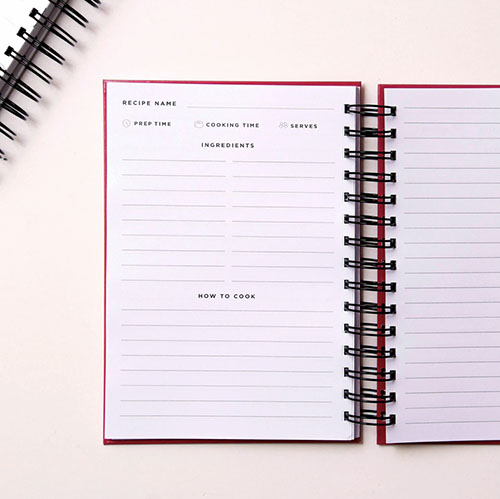 RECIPE NAME
PREP TIME COOKING TIME SERVES
INGREDIENTS
HOW TO COOK